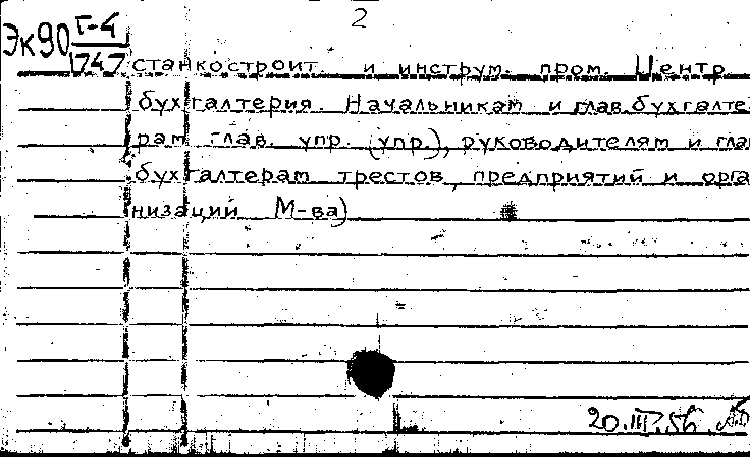 2
Эк90 Г-4
1747
станкостроит. и инструм. пром. Центр.
бухгалтерия. Начальникам и глав. бухгалте-
рам глав. упр. (упр.), руководителям и глав
бухгалтерам трестов, предприятий и орга-
низаций М-ва)
20.III.56.